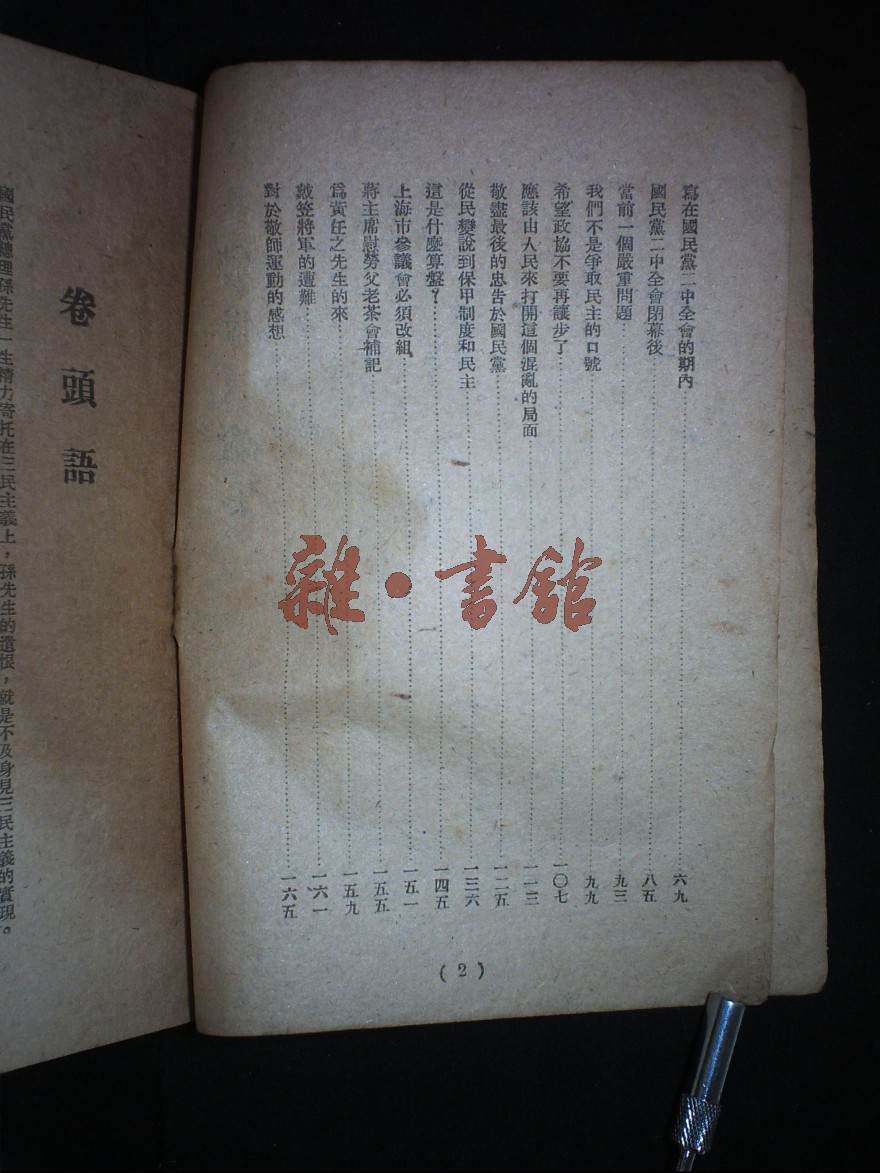 寫在國民黨二中全會的期內……六九
國民黨二中全會閉幕後……八五
當前一個嚴重問題……九三
我們不是爭取民主的口號……九九
希望政協不要再讓步了……一〇七
應該由人民來打開這個混亂的局面……一一三
敬盡最後的忠告於國民黨……一二五
從民變說到保甲制度和民主……一三六
這是什麼算盤？……一四五
上海市參議會必須改組……一五一
蔣主席慰勞父老茶會補記……一五五
爲黃任之先生的來……一五九
戴笠將軍的遭難……一六一
對於敬師運動的感想……一六五
(2)
雜·書館
卷頭語
國民黨總理孫先生一生精力寄托在三民主義上，孫先生的遺恨，就是不及身見三民主義的實現。